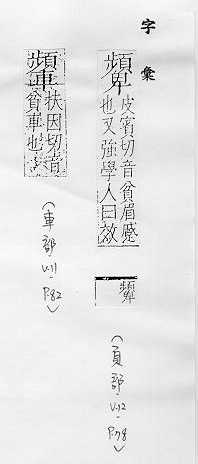 字彙
顰
皮賓切音貧眉蹙
也又強學人曰效
顰
(頁部.V-12.P-78)
扶因切音
貧車也
(車部 V-11.P-82)